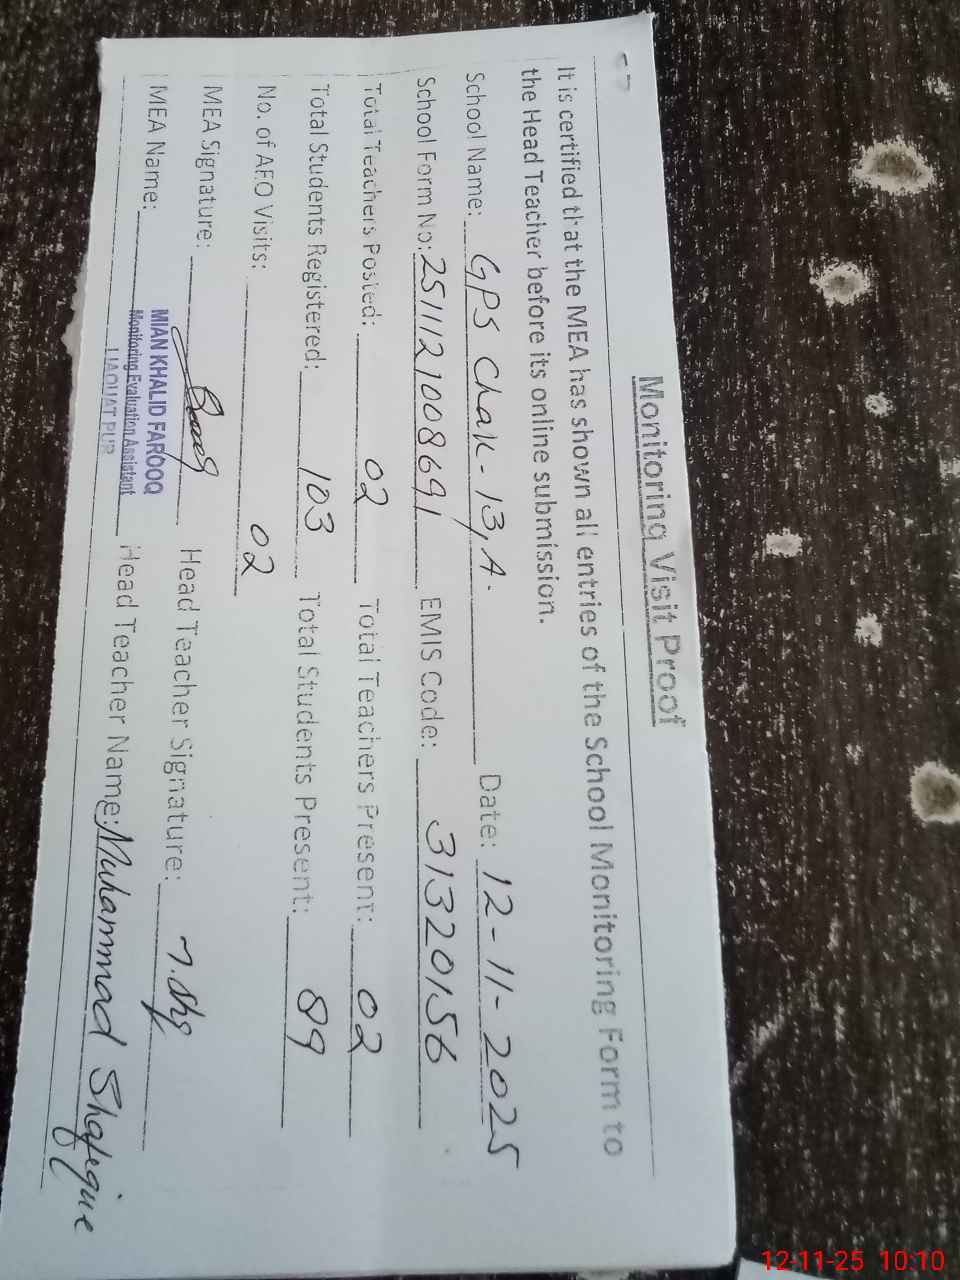 Monitoring Visit Proof
It is certified that the MEA has shown all entries of the School Monitoring Form to
the Head Teacher before its online submission.
School Name: GPS Chak-13,A. Date: 12-11-2025
School Form No: 2511121008691 EMIS Code: 31320156
Total Teachers Posted: 02 Total Teachers Present: 02
Total Students Registered: 103 Total Students Present: 89
No. of AEO Visits: 02
MEA Signature: Head Teacher Signature:
MEA Name: MIAN KHALID FAROOQ Head Teacher Name: Muhammad Shafique
Monitoring Evaluation Assistant
LIAQUAT PUR
12-11-25 10:10